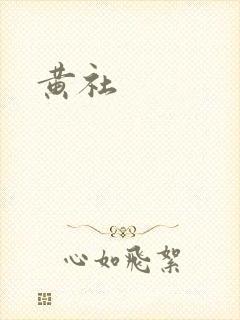 黄社
心如飛絮